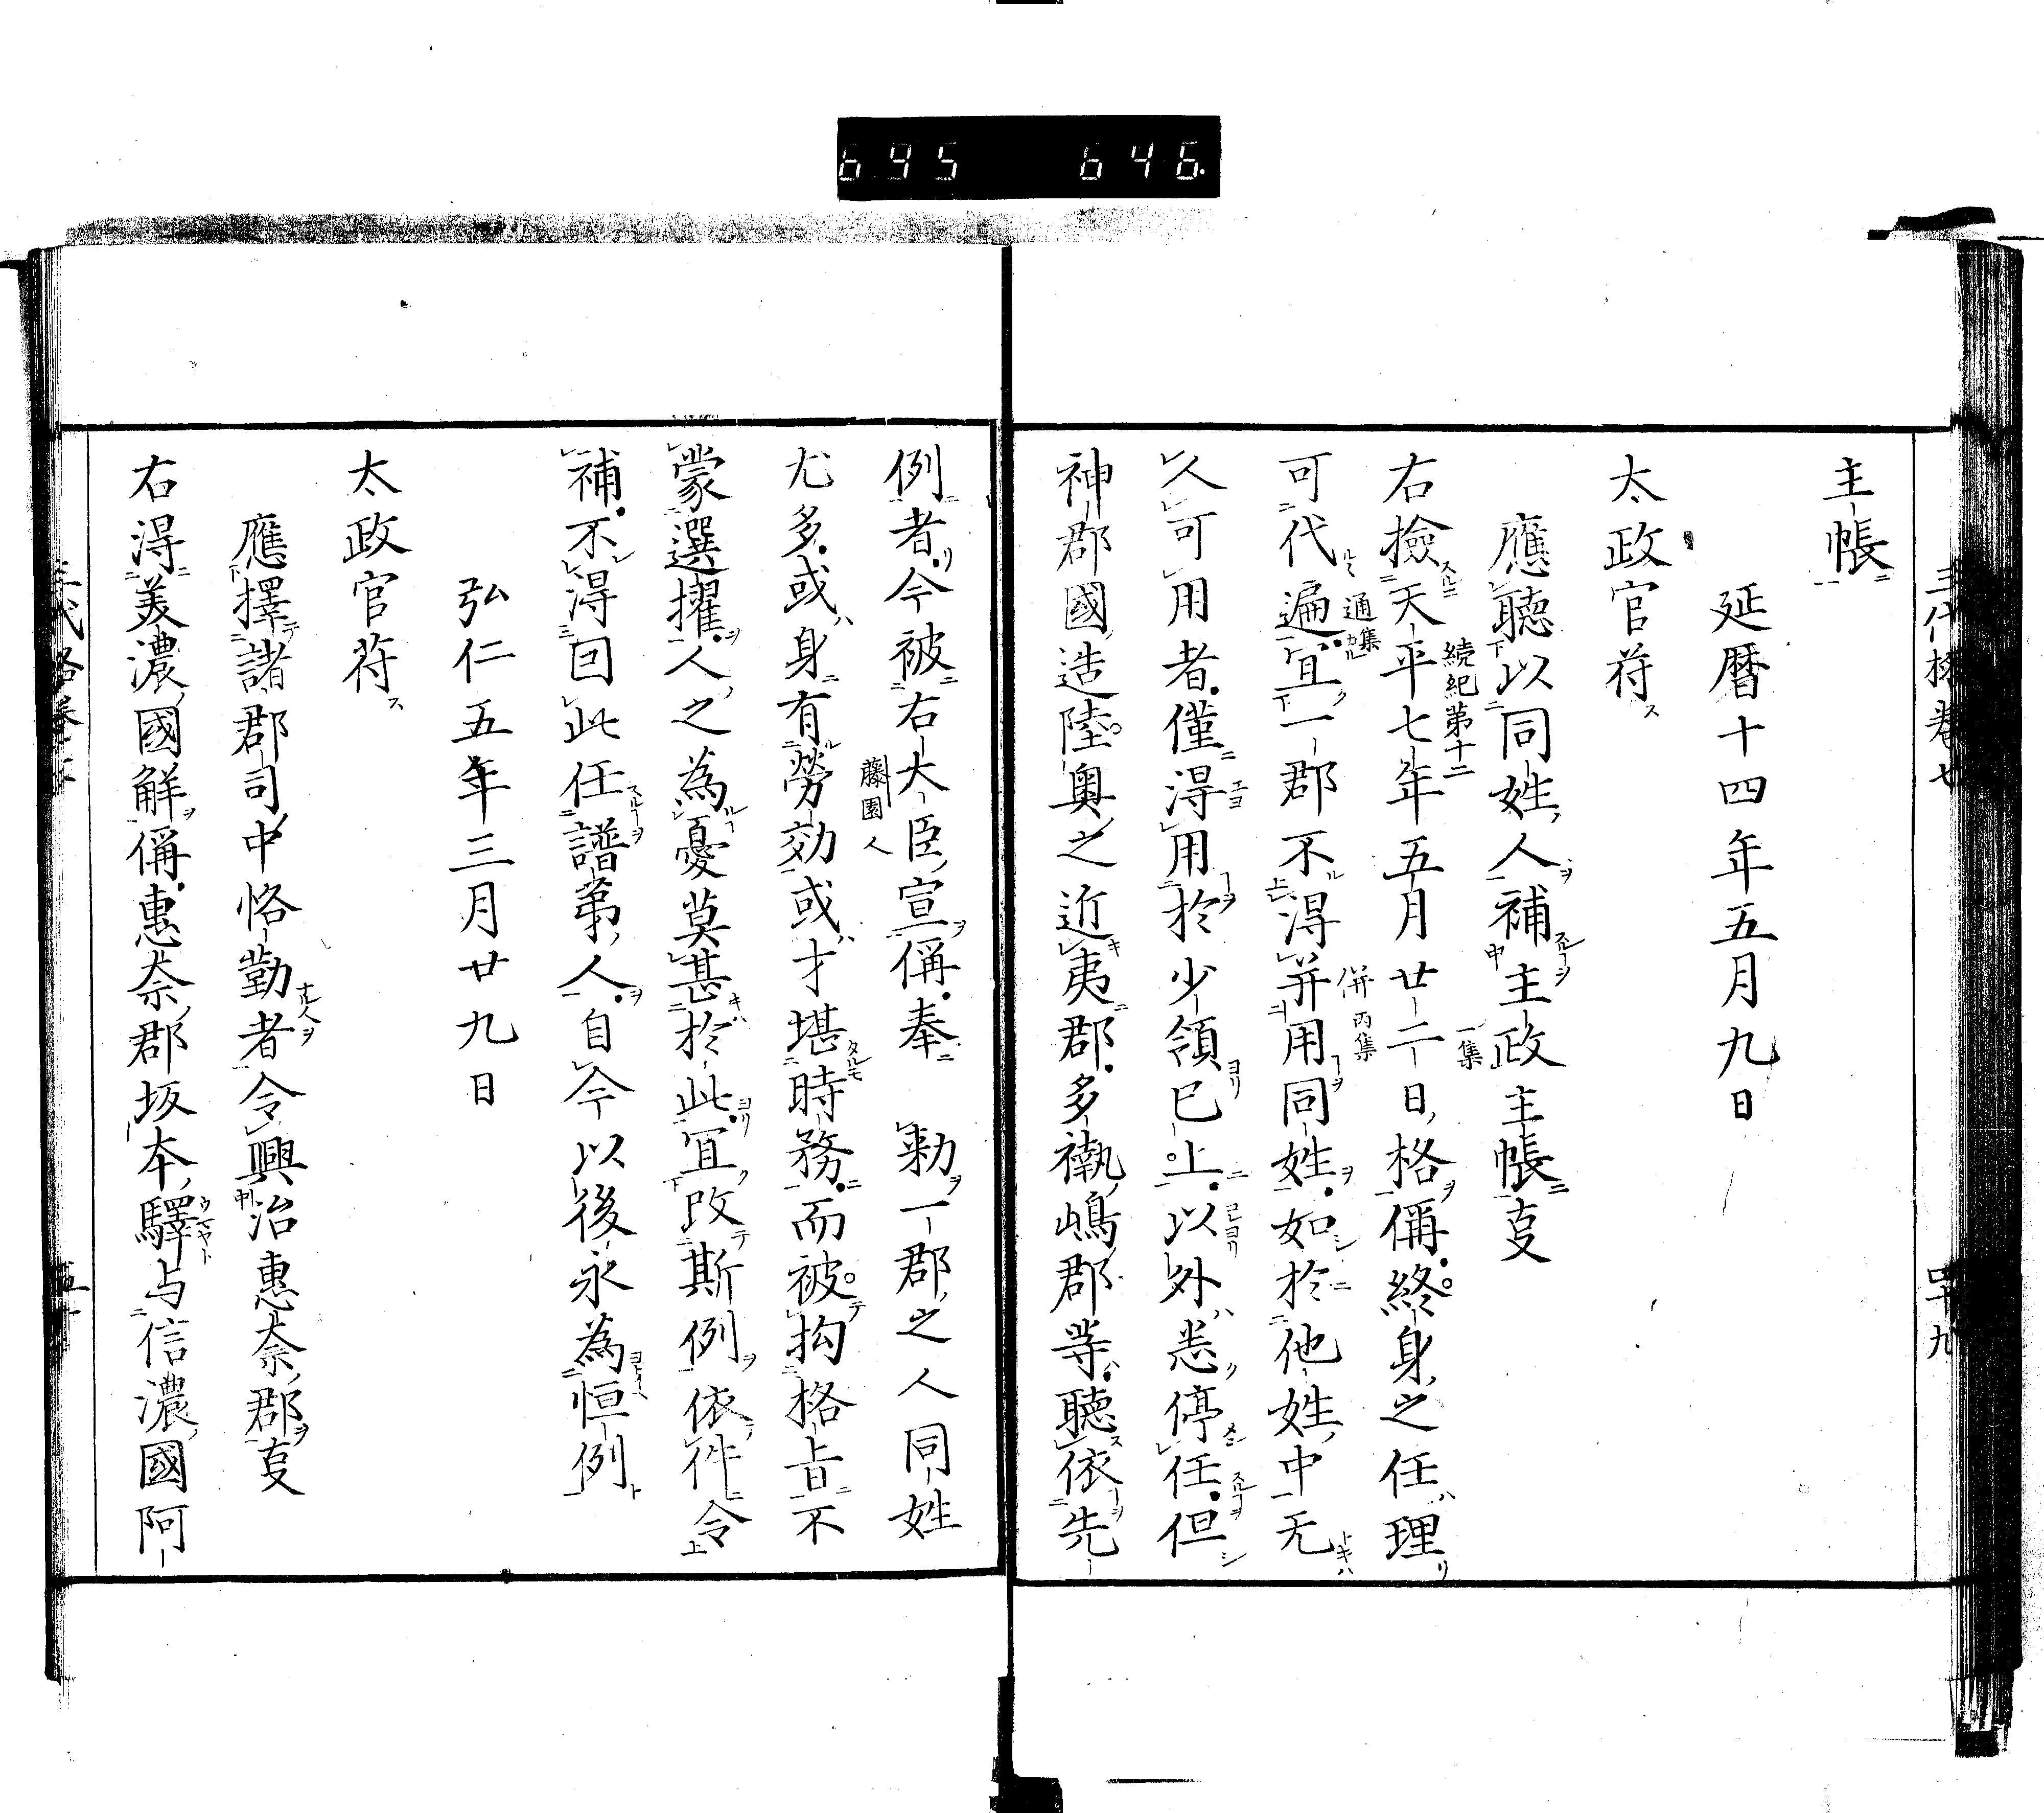 695 646.
三代格卷七 四十九
主帳
延暦十四年五月九日
太政官符
應聽以同姓人補主政主帳叓
右撿天平七年五月廿二日格偁終身之任理
続紀第十二
一集
可代遍宜一郡不得并用同姓如於他姓中无
通集
併丙集
人可用者僅得用於少領已上以外悉停任但
神郡國造陸奥之近夷郡多褹嶋郡等聽依先
例者今被右大臣宣偁奉 勅一郡之人同姓
藤園人
尤多或身有勞効或才堪時務而被拘格旨不
蒙選擢人之為憂莫甚於此宜改斯例依件令
補不得因此任譜第人自今以後永為恒例
弘仁五年三月廿九日
太政官符
應擇諸郡司中恪勤者令興治惠奈郡叓
右得美濃國解偁惠奈郡坂本驛与信濃國阿